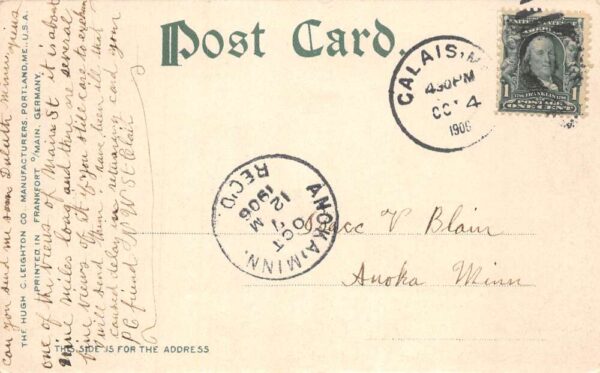 Post Card.
CALAIS, ME
4-30PM
OCT 4
1906
UNITED STATES
1
1706 FRANKLIN 1790
POSTAGE
ONE CENT
ANOKA, MINN.
OCT 7
M
1906
12
REC'D.
V Blair
Anoka Minn
THIS SIDE IS FOR THE ADDRESS
THE HUGH C. LEIGHTON CO. MANUFACTURERS, PORTLAND, ME. U.S.A.
PRINTED IN FRANKFORT O/MAIN, GERMANY.
can you send me some Duluth Minn views
one of the views of Main St it is about
nine miles long and there are several
fine views of it if you still care to exchange
I will send them have been ill that
caused delay in returning card your
P.C. friend W W St Clair